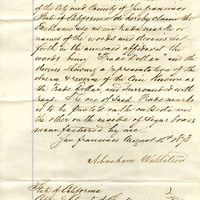 of the City and County of San Francisco
State of California do hereby claim the
Exclusive use as my trade mark or
name of the words and devices set
forth in the annexed affidavit the
words being Trade Dollar and the
device showing a representation of the
obverse & reverse of the Coin Known as
the Trade Dollar and surrounded with
rays. The one of said Trade marks
is to be pasted on the outside and
the other on the inside of Segar boxes
manufactured by me.
San Francisco August 16th 1873
Abraham Wollstein
State of California